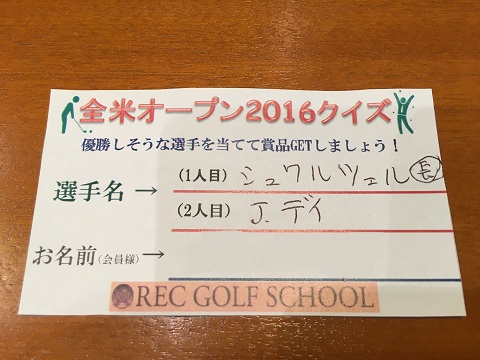 全米オープン2016クイズ
優勝しそうな選手を当てて賞品GETしましょう！
選手名 → (1人目) シュワルツェル 長
(2人目) J.デイ
お名前(会員様)→
REC GOLF SCHOOL